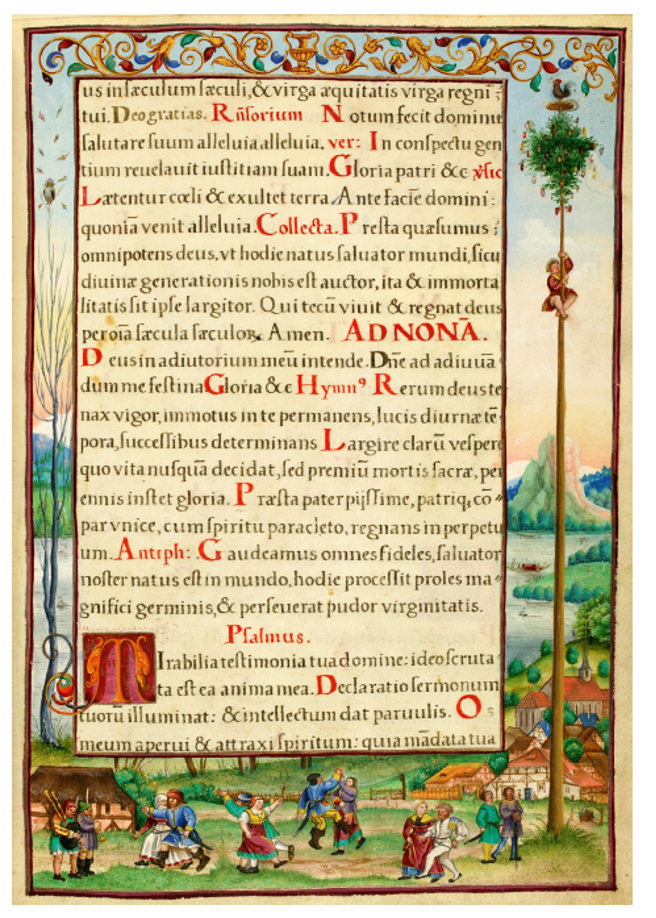 us in sæculum sæculi,& virga æquitatis virga regni :
tui. Deo gratias. Rn̄sorium Notum fecit dominu
salutare suum alleluia alleluia. ver: In conspectu gen
tium reuelauit iustitiam suam. Gloria patri &c ꝟsic
Lætentur cœli & exultet terra. Ante faciē domini :
quoniā venit alleluia. Collecta. Presta quæsumus :
omnipotens deus. vt hodie natus saluator mundi, sicu
diuinæ generationis nobis est auctor, ita & immorta
litatis sit ipse largitor. Qui tecū viuit & regnat deus
per oīa sæcula sæculoꝝ. Amen. AD NONĀ.
Deus in adiutorium meū intende. Dn̄e ad adiuuā
dum me festina Gloria &c Hymnꝰ Rerum deus te
nax vigor, immotus in te permanens, lucis diurnæ tē
pora, successibus determinans Largire clarū vespere
quo vita nusquā decidat, sed premiū mortis sacræ, per
ennis instet gloria. Præsta pater pijssime, patriq; cō
par vnice, cum spiritu paracleto, regnans in perpetu
um. Antiph: Gaudeamus omnes fideles, saluator
noster natus est in mundo, hodie processit proles ma
gnifici germinis, & perseuerat pudor virginitatis.
Psalmus.
Mirabilia testimonia tua domine: ideo scruta
ta est ea anima mea. Declaratio sermonum
tuorū illuminat: & intellectum dat paruulis. Os
meum aperui & attraxi spiritum: quia mādata tua